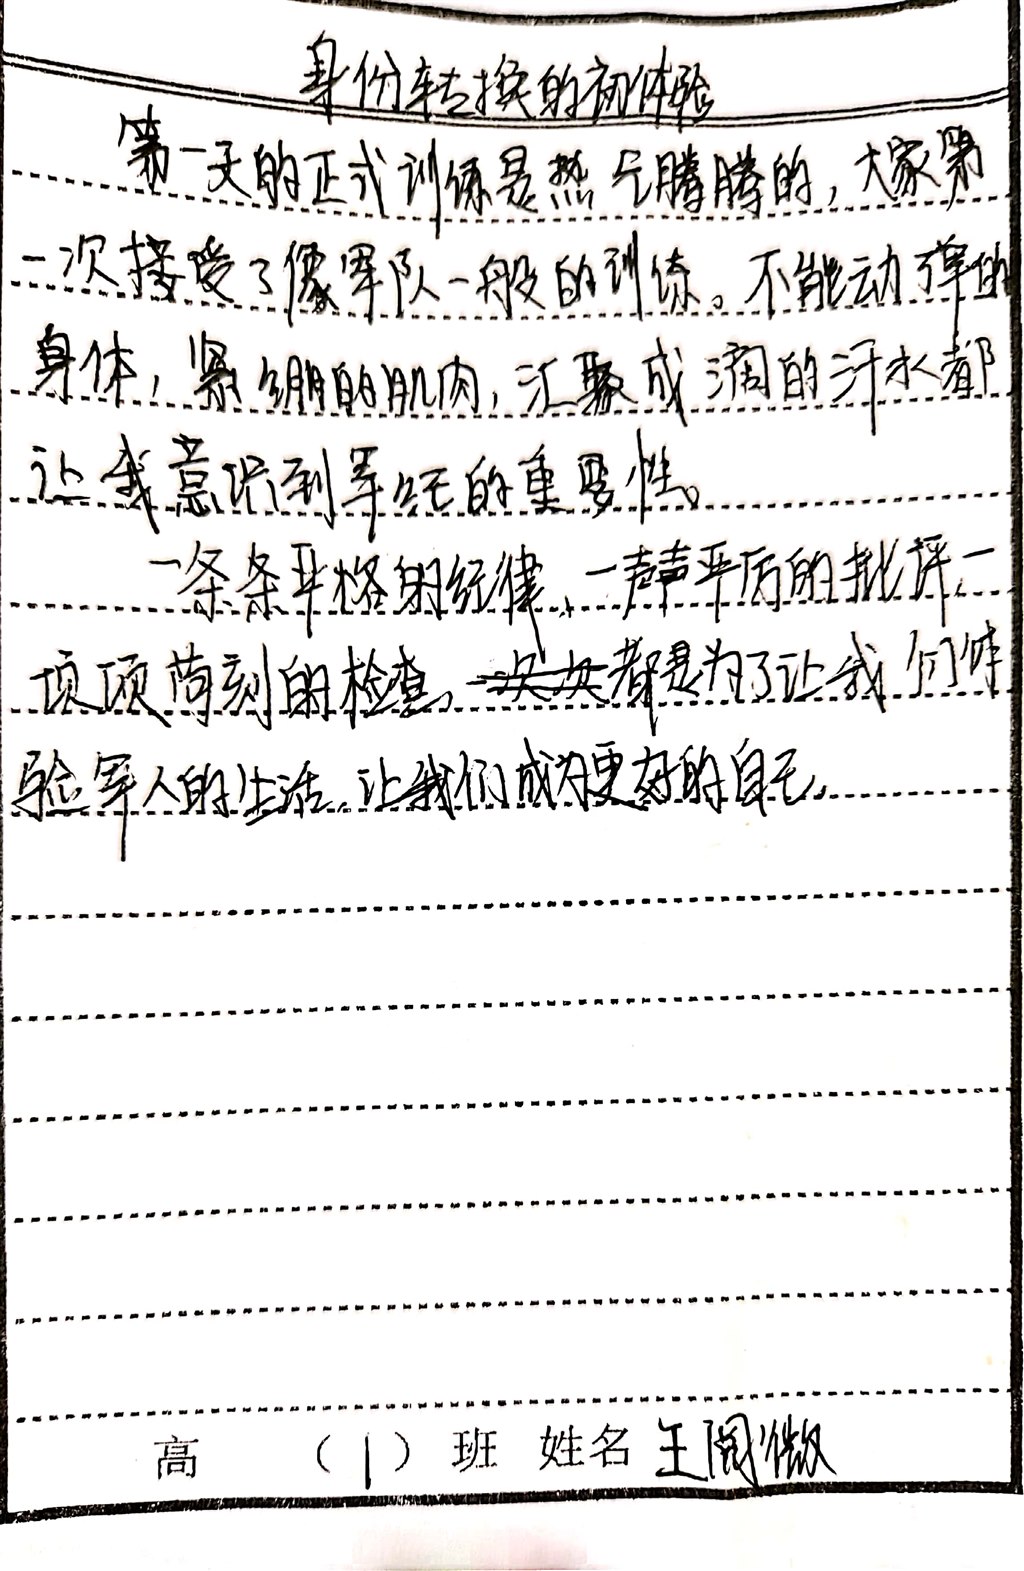 身份转换的初体验
第一天的正式训练是热气腾腾的，大家第
一次接受了像军队一般的训练。不能动弹的
身体，紧绷的肌肉，汇聚成滴的汗水都
让我意识到军纪的重要性。
一条条严格的纪律、一声声严厉的批评、一
项项苛刻的检查，都是为了让我们体
验军人的生活，让我们成为更好的自己。
高 （1）班 姓名 王阅微